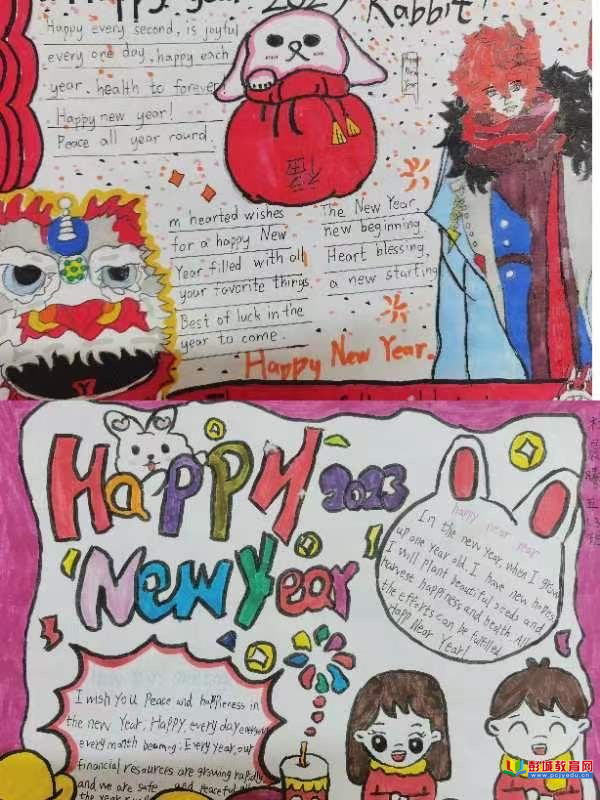 Happy year 2023 Rabbit!
Happy every second, is joyful
every one day, happy each
year. health to forever
Happy new year!
Peace all year round.
福
m hearted wishes
for a happy New
Year filled with all
your favorite things
Best of luck in the
year to come.
The New Year,
new beginning,
Heart blessing,
a new starting
Happy New Year.
HaPPY 2023
New Year
happy near year
In the new year, when I grow
up one year old, I have new hopes.
I will plant beautiful seeds and
harvest happiness and health. All
the efforts can be fulfilled
Happy Near Year!
I wish you Peace and happiness in
the new Year, Happy, every day
every month beaming. Every year, our
financial resources are growing rapidly
and we are safe and peaceful
the year
彭城教育网
www.pcjyedu.cn